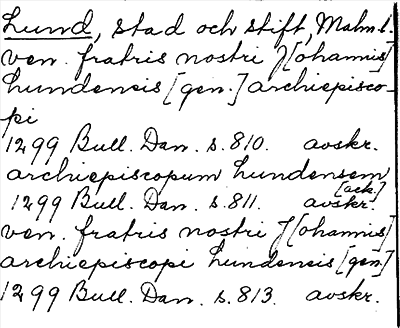 Lund, stad och stift, Malm. l.
ven. fratris nostri J[ohannis]
lundensis [gen.] archiepisco-
pi
1299 Bull. Dan. s. 810. avskr.
archiepiscopum lundensem
[ack.]
1299 Bull. Dan. s. 811. avskr.
ven. fratris nostri J[ohannis]
archiepiscopi lundensis [gen.]
1299 Bull. Dan. s. 813. avskr.